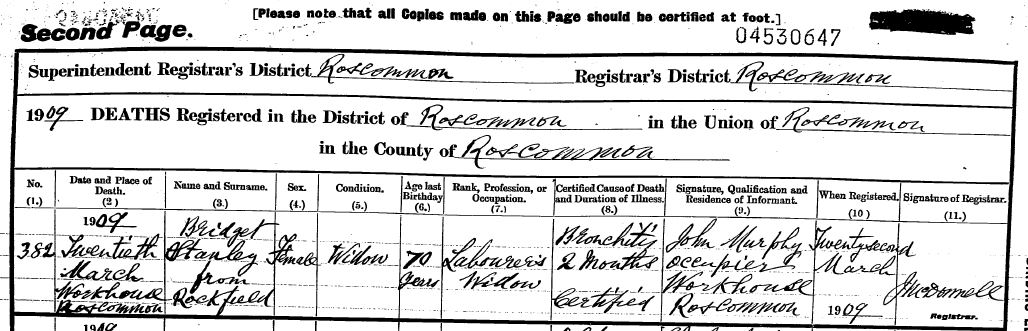 [Please note that all Copies made on this Page should be certified at foot.]
Second Page.
04530647
Superintendent Registrar's District Roscommon Registrar's District Roscommon
1909 DEATHS Registered in the District of Roscommon in the Union of Roscommon
in the County of Roscommon
No. (1.)
Date and Place of Death. (2.)
Name and Surname. (3.)
Sex. (4.)
Condition. (5.)
Age last Birthday (6.)
Rank, Profession, or Occupation. (7.)
Certified Cause of Death and Duration of Illness. (8.)
Signature, Qualification and Residence of Informant. (9.)
When Registered. (10.)
Signature of Registrar. (11.)
382
1909
Twentieth
March
Workhouse
Roscommon
Bridget
Stanley
from
Rockfield
Female
Widow
70
Years
Labourer's
Widow
Bronchitis
2 Months
Certified
John Murphy
Occupier
Workhouse
Roscommon
Twentysecond
March
1909
Registrar.